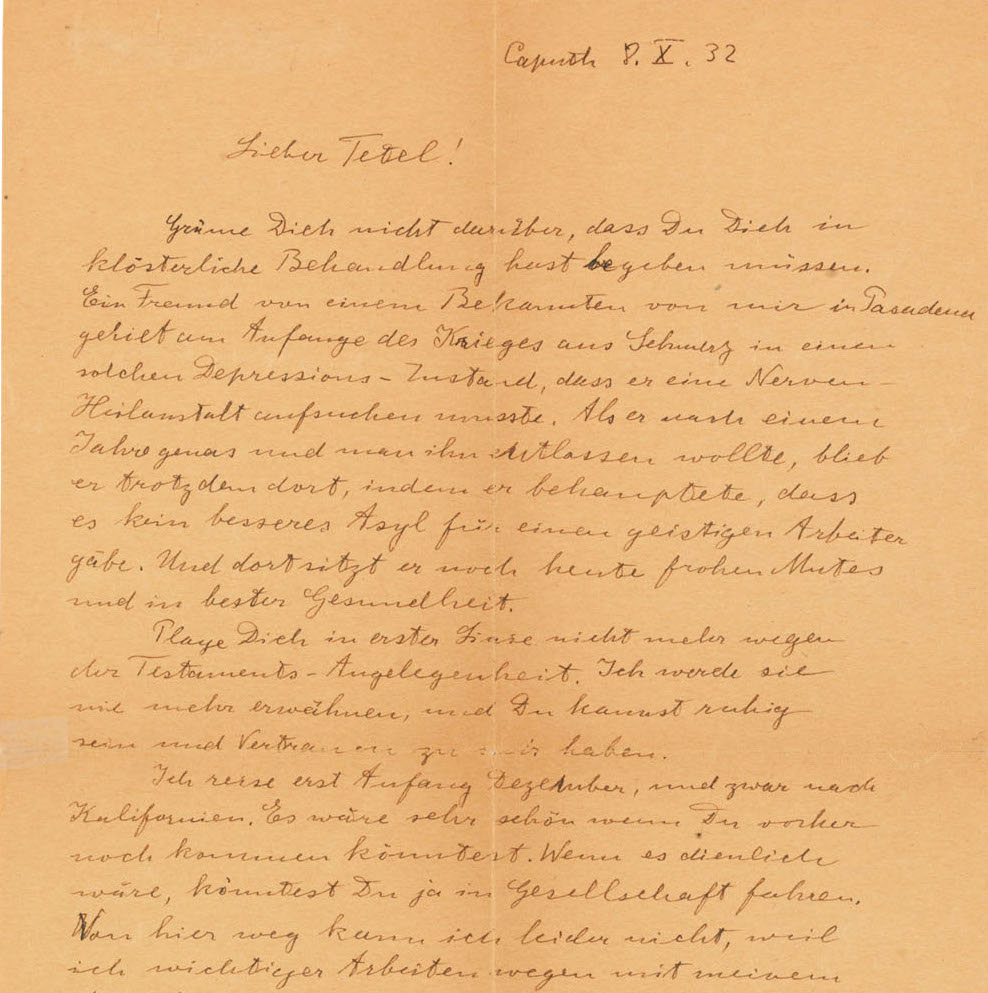 Caputh 8. X. 32
Lieber Tetel!
Gräme Dich nicht darüber, dass Du Dich in
klösterliche Behandlung hast begeben müssen.
Ein Freund von einem Bekannten von mir in Pasadena
geriet am Anfange des Krieges aus Schmerz in einen
solchen Depressions-Zustand, dass er eine Nerven-
Heilanstalt aufsuchen musste. Als er nach einem
Jahre genas und man ihn entlassen wollte, blieb
er trotzdem dort, indem er behauptete, dass
es kein besseres Asyl für einen geistigen Arbeiter
gäbe. Und dort sitzt er noch heute frohen Mutes
und in bester Gesundheit.
Plage Dich in erster Linie nicht mehr wegen
der Testaments-Angelegenheit. Ich werde sie
nie mehr erwähnen, und Du kannst ruhig
sein und Vertrauen zu mir haben.
Ich reise erst Anfang Dezember, und zwar nach
Kalifornien. Es wäre sehr schön wenn Du vorher
noch kommen könntest. Wenn es dienlich
wäre, könntest Du ja in Gesellschaft fahren.
Von hier weg kann ich leider nicht, weil
ich wichtiger Arbeiten wegen mit meinem